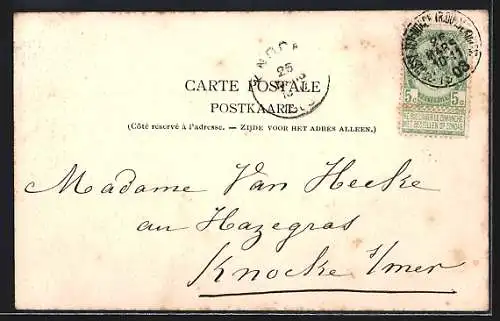 CARTE POSTALE
POSTKAART
(Côté réservé à l'adresse. — ZIJDE VOOR HET ADRES ALLEEN.)
5c 5c
NE PAS LIVRER LE DIMANCHE
NIET BESTELLEN OP ZONDAG
Madame Van Hecke
au Hazegras
Knocke s/mer